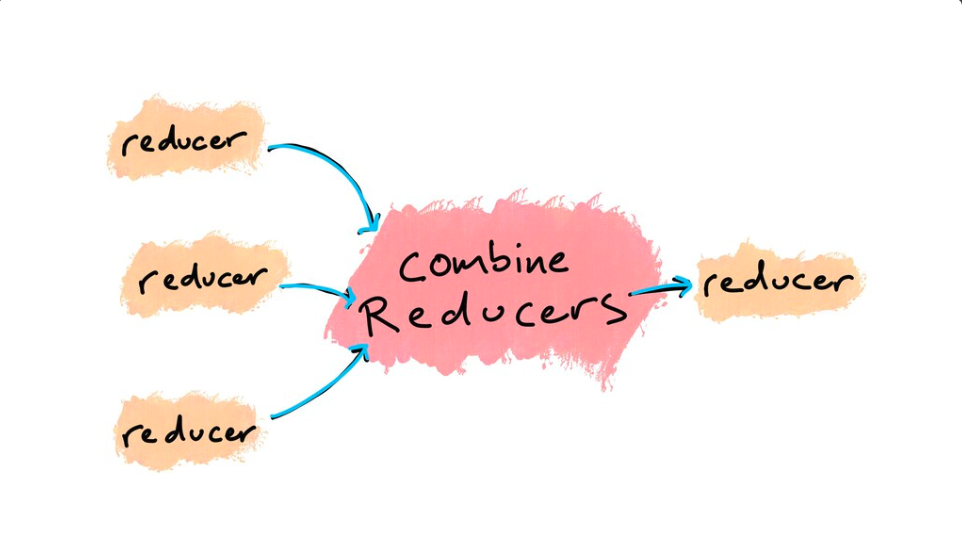 reducer
reducer
reducer
combine
Reducers
reducer